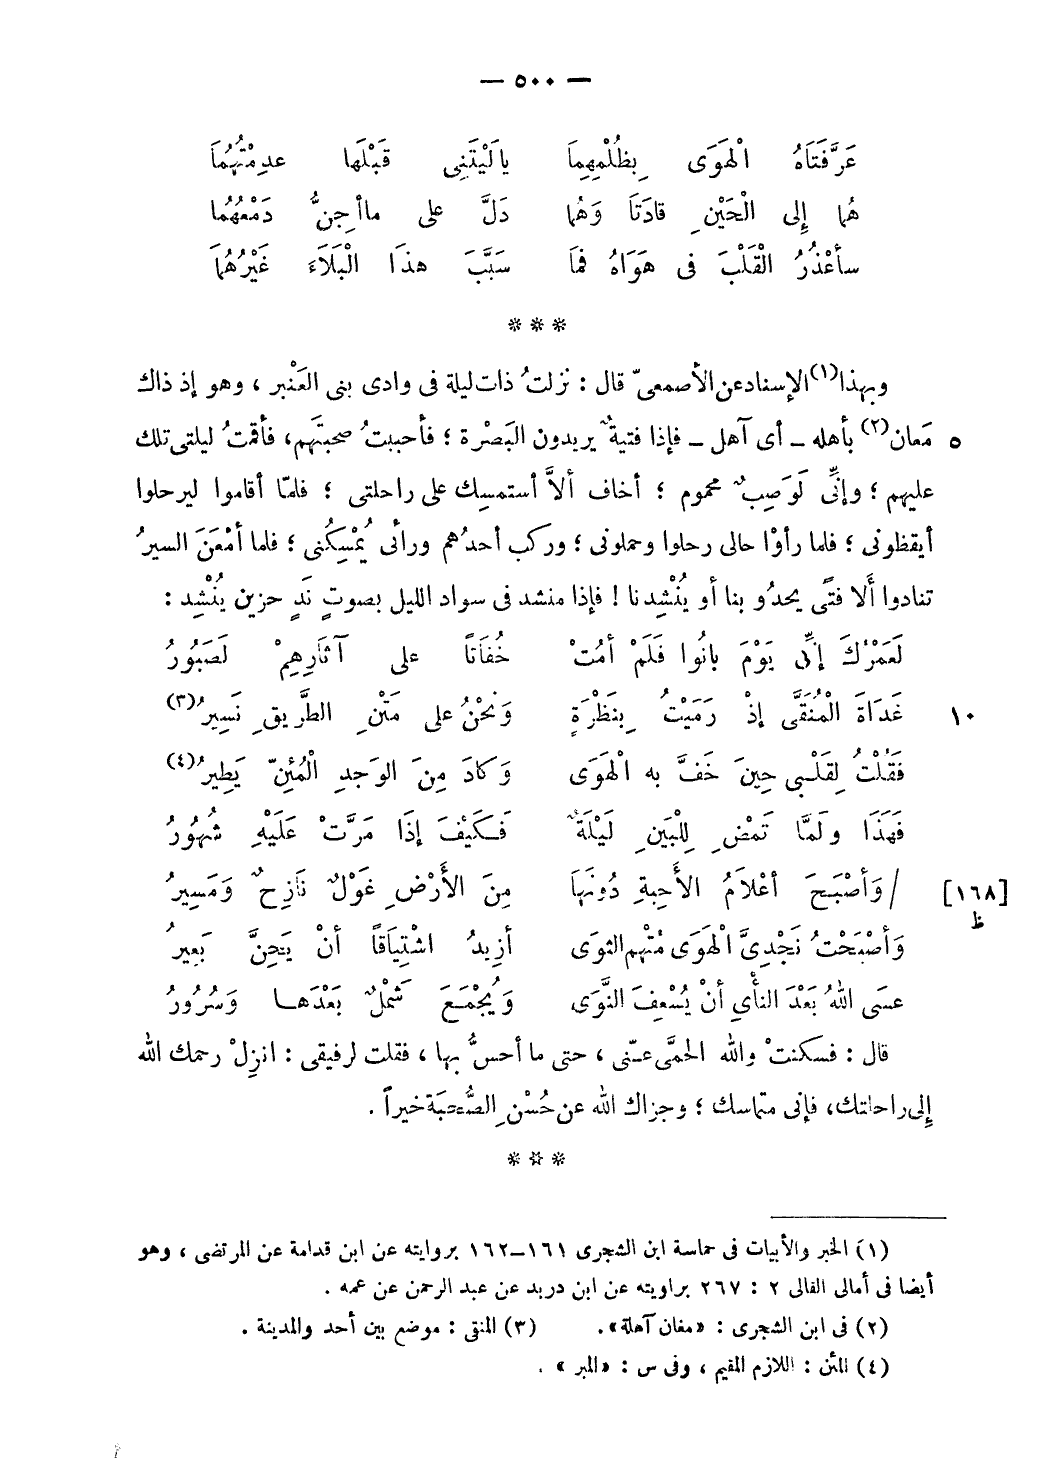 — ٥٠٠ —
عَرَّفَتَاهُ الْهَوَى بِظُلْمِهِمَا يالَيْتَنِى قَبْلَها عدِمْتُهُمَا
هُما إِلى الْحَيْنِ قادَتَا وَهُما دَلَّ على ماأجِنُّ دَمْعُهُما
سأعْذُرُ الْقَلْبَ فى هَوَاهُ فَمَا سَبَّبَ هذَا الْبَلَاءَ غَيْرُهُمَا
***
وبهذا(١) الإسناد عن الأصمعىّ قال : نزلتُ ذات ليلة فى وادى بنى العَنْبر ، وهو إذ ذاك
٥ مَعان(٢) بأهله – أى آهل – فإذا فتيةٌ يريدون البَصْرة ؛ فأحببتُ صحبتَهم، فأقمتُ ليلتى تلك
عليهم ؛ وإنِّى لَوَصِبٌ محموم ؛ أخاف ألاَّ أستمسِك على راحلتى ؛ فلمّا أقاموا ليرحلوا
أيقظونى ؛ فلما رأوْا حالى رحلوا وحملونى ؛ وركب أحدُهم ورائى يُمْسِكُنى ؛ فلما أمْعَنَ السيرُ
تنادوا أَلا فتًى يحدُو بنا أو يُنْشِدنا ! فإذا منشد فى سواد الليل بصوتٍ نَدٍ حزين يُنْشِد :
لَعَمْرُكَ إنِّى يَوْمَ بانُوا فَلَمْ أمُتْ خُفَاتًا على آثارِهِمْ لَصَبُورُ
١٠ غَدَاةَ الْمُنَقَّى إذْ رَمَيْتُ بِنَظْرَةٍ وَنحْنُ على مَتْنِ الطَّرِيقِ نَسِيرُ(٣)
فَقُلْتُ لِقَلْبِى حِينَ خَفَّ به الْهَوَى وَكادَ مِنَ الوَجدِ الْمُبِنِّ يَطِيرُ(٤)
فَهَذَا ولَمَّا تَمْضِ لِلْبَينِ لَيْلَةٌ فَكَيْفَ إذَا مَرَّتْ عَلَيْهِ شُهُورُ
[١٦٨ ظ] / وَأصْبَحَ أعْلاَمُ الأَحِبةِ دُونَها مِنَ الأَرْضِ غَوْلٌ نَازِحٌ وَمَسِيرُ
وَأصْبَحْتُ نَجْدِىَّ الْهَوَى مُتْهِم الثوَى أزِيدُ اشْتِيَاقًا أنْ يَحِنَّ بَعِيرُ
عسَى اللهُ بَعْدَ النأْىِ أنْ يُسْعِفَ النَّوَى وَيُجْمَعَ شَمْلٌ بَعْدَهَا وَسُرُورُ
قال : فسكنتْ والله الحمَّى عنّى ، حتى ما أحسُّ بها ، فقلت لرفيقى : انزِلْ رحمك الله
إلى راحلتك، فإنى متماسك ؛ وجزاك الله عن حُسْنِ الصُّحبَة خيراً .
***
(١) الخبر والأبيات فى حماسة ابن الشجرى ١٦١–١٦٢ بروايته عن ابن قدامة عن المرتضى ، وهو
أيضا فى أمالى القالى ٢ : ٢٦٧ براويته عن ابن دريد عن عبد الرحمن عن عمه .
(٢) فى ابن الشجرى : «مغان آهلة». (٣) المنقى : موضع بين أحد والمدينة .
(٤) المبن : اللازم المقيم ، وفى س : «المبر» .